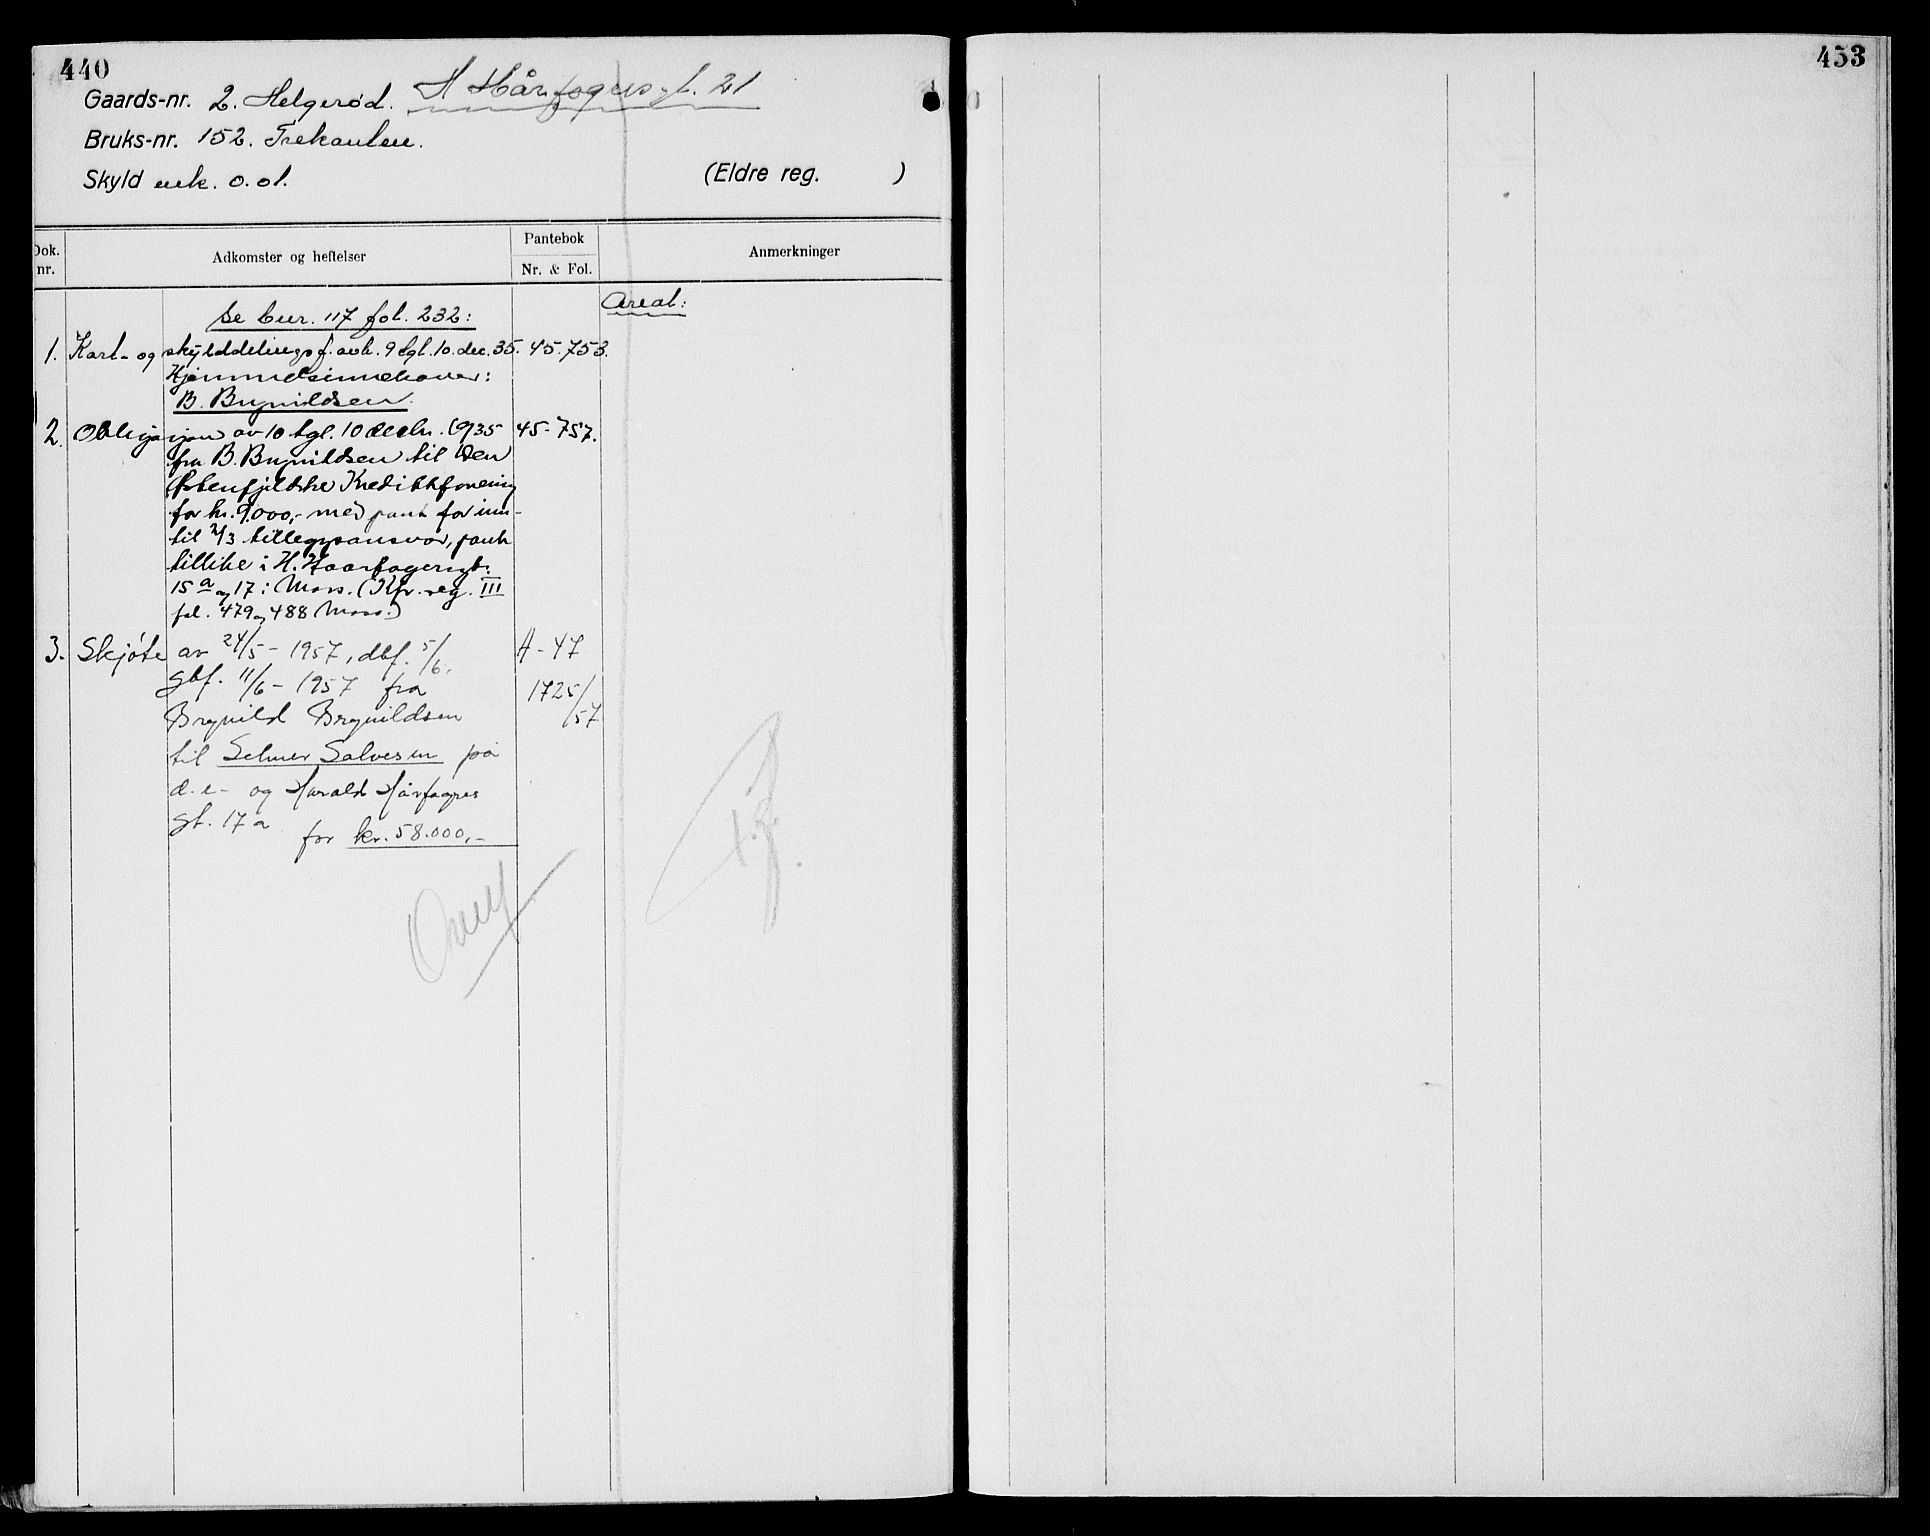 440
Gaards-nr. 2. Helgerød. H Hårfagersgt. 21
Bruks-nr. 152. Trekanten.
Skyld mk. 0.01. (Eldre reg. )
Dok. nr.
Adkomster og heftelser
Pantebok
Nr. & Fol.
Anmerkninger
Areal:
Se bnr. 117 fol. 232:
1. Kart- og skylddelingsf. avh. 9 tgl. 10. dec. 35. 45-753.
Hjemmelsinnehaver:
B. Brynildsen.
2. Obligasjon av 10 tgl. 10 decbr. 1935 45-757.
fra B. Brynildsen til Den
Østenfjeldske Kredittforening
for kr. 9.000,- med pant for inn-
til 2/3 tilleggsansvar, pant
tillike i H. Haarfagersgt.
15 a og 17 i Moss. (Kfr. reg. III
fol. 479 og 488 Moss.)
3. Skjøte av 24/5 - 1957, dbf. 5/6, A - 47
gbf. 11/6 - 1957 fra 1725/57
Brynild Brynildsen
til Selmer Salvesen på
d.e- og Harald Hårfagres
gt. 17 a for kr. 58.000,-
453